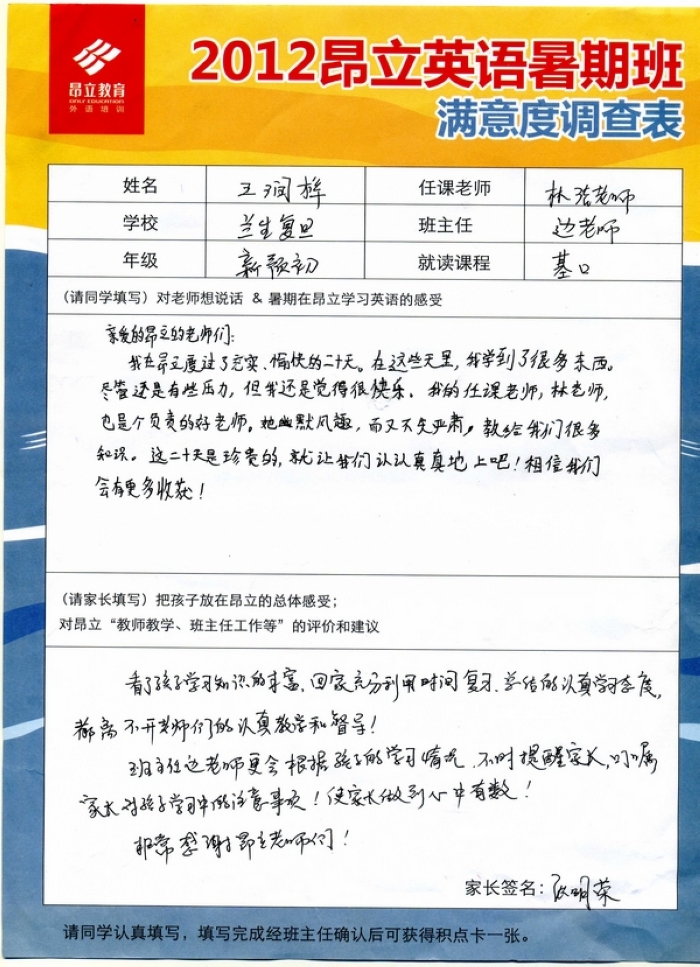 昂立教育
ONLY EDUCATION
外语培训
2012昂立英语暑期班
满意度调查表
姓名 王润桦 任课老师 林浩老师
学校 兰生复旦 班主任 边老师
年级 新预初 就读课程 基口
(请同学填写)对老师想说话 & 暑期在昂立学习英语的感受
亲爱的昂立的老师们:
我在昂立度过了充实、愉快的二十天。在这些天里,我学到了很多东西。
尽管还是有些压力,但我还是觉得很快乐。我的任课老师,林老师,
也是个负责的好老师。她幽默风趣,而又不失严肃。教给我们很多
知识。这二十天是珍贵的,就让我们认认真真地上吧!相信我们
会有更多收获!
(请家长填写)把孩子放在昂立的总体感受;
对昂立“教师教学、班主任工作等”的评价和建议
看了孩子学习知识的丰富、回家充分利用时间复习、总结的认真学习态度,
都离不开老师们的认真教学和督导!
班主任边老师更会根据孩子的学习情况,不时提醒家长,叮嘱
家长对孩子学习中的注意事项!使家长做到心中有数!
非常感谢昂立老师们!
家长签名:张明荣
请同学认真填写,填写完成经班主任确认后可获得积点卡一张。